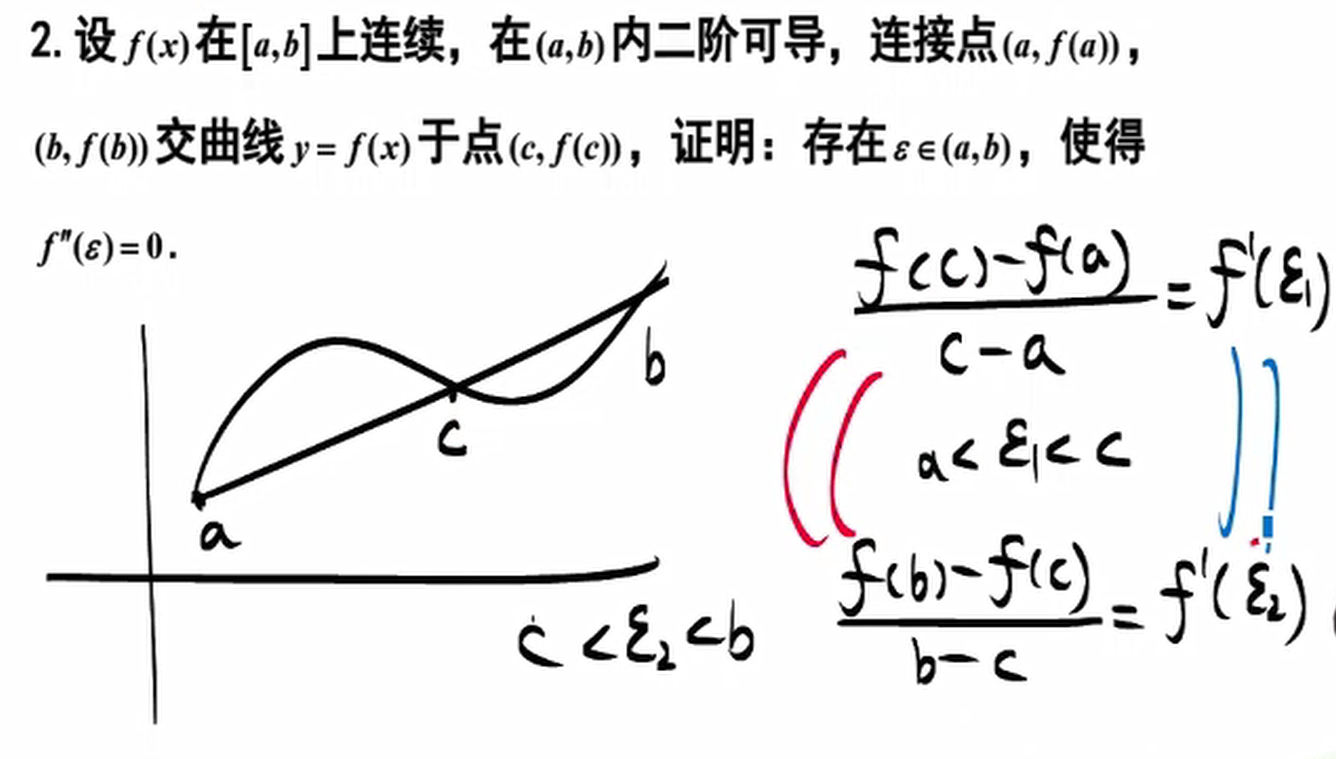 2. 设 f(x) 在 [a,b] 上连续，在 (a,b) 内二阶可导，连接点 (a, f(a))，
(b, f(b)) 交曲线 y = f(x) 于点 (c, f(c))，证明：存在 ε∈(a,b)，使得
f″(ε)=0.
f(c)-f(a)/c-a = f'(ε₁)
a < ε₁ < c
f(b)-f(c)/b-c = f'(ε₂)
a
c
b
c < ε₂ < b